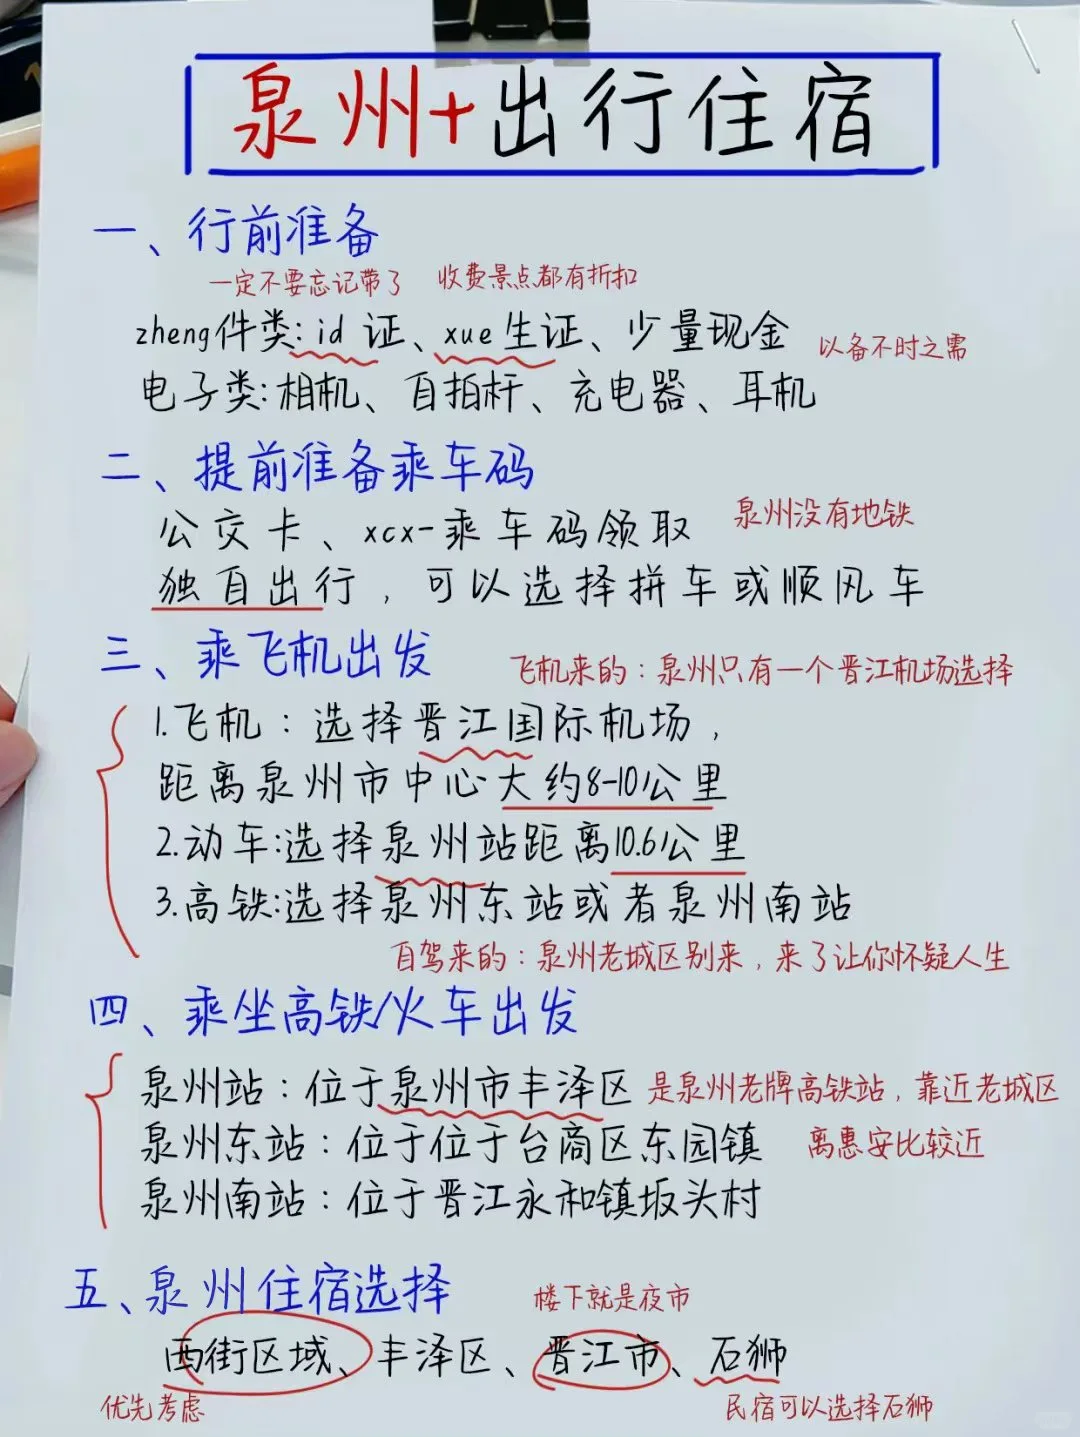 泉州+出行住宿
一、行前准备
一定不要忘记带了 收费景点都有折扣
zheng件类: id 证、xue生证、少量现金
以备不时之需
电子类:相机、自拍杆、充电器、耳机
二、提前准备乘车码
公交卡、xcx-乘车码领取
泉州没有地铁
独自出行,可以选择拼车或顺风车
三、乘飞机出发
飞机来的:泉州只有一个晋江机场选择
1.飞机:选择晋江国际机场,
距离泉州市中心大约8-10公里
2.动车:选择泉州站距离10.6公里
3.高铁:选择泉州东站或者泉州南站
自驾来的:泉州老城区别来,来了让你怀疑人生
四、乘坐高铁/火车出发
泉州站:位于泉州市丰泽区 是泉州老牌高铁站,靠近老城区
泉州东站:位于位于台商区东园镇 离惠安比较近
泉州南站:位于晋江永和镇坂头村
五、泉州住宿选择
楼下就是夜市
西街区域、丰泽区、晋江市、石狮
优先考虑
民宿可以选择石狮